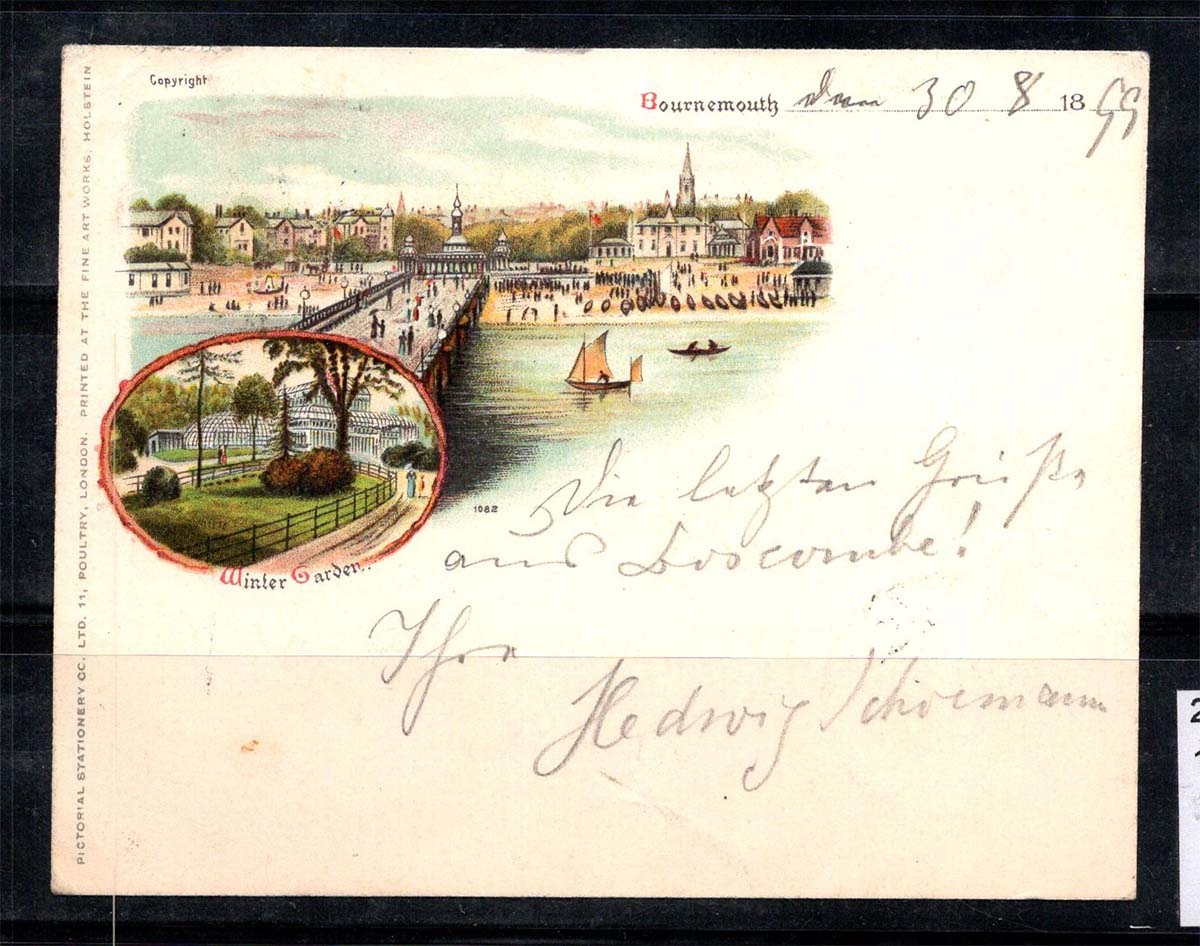 Copyright
Bournemouth den 30 8 1899
1082
Winter Garden.
Die letzten Grüße
aus Boscombe!
Ihre
Hedwig Schoemann
PICTORIAL STATIONERY CO. LTD. 11, POULTRY, LONDON. PRINTED AT THE FINE ART WORKS, HOLSTEIN
2